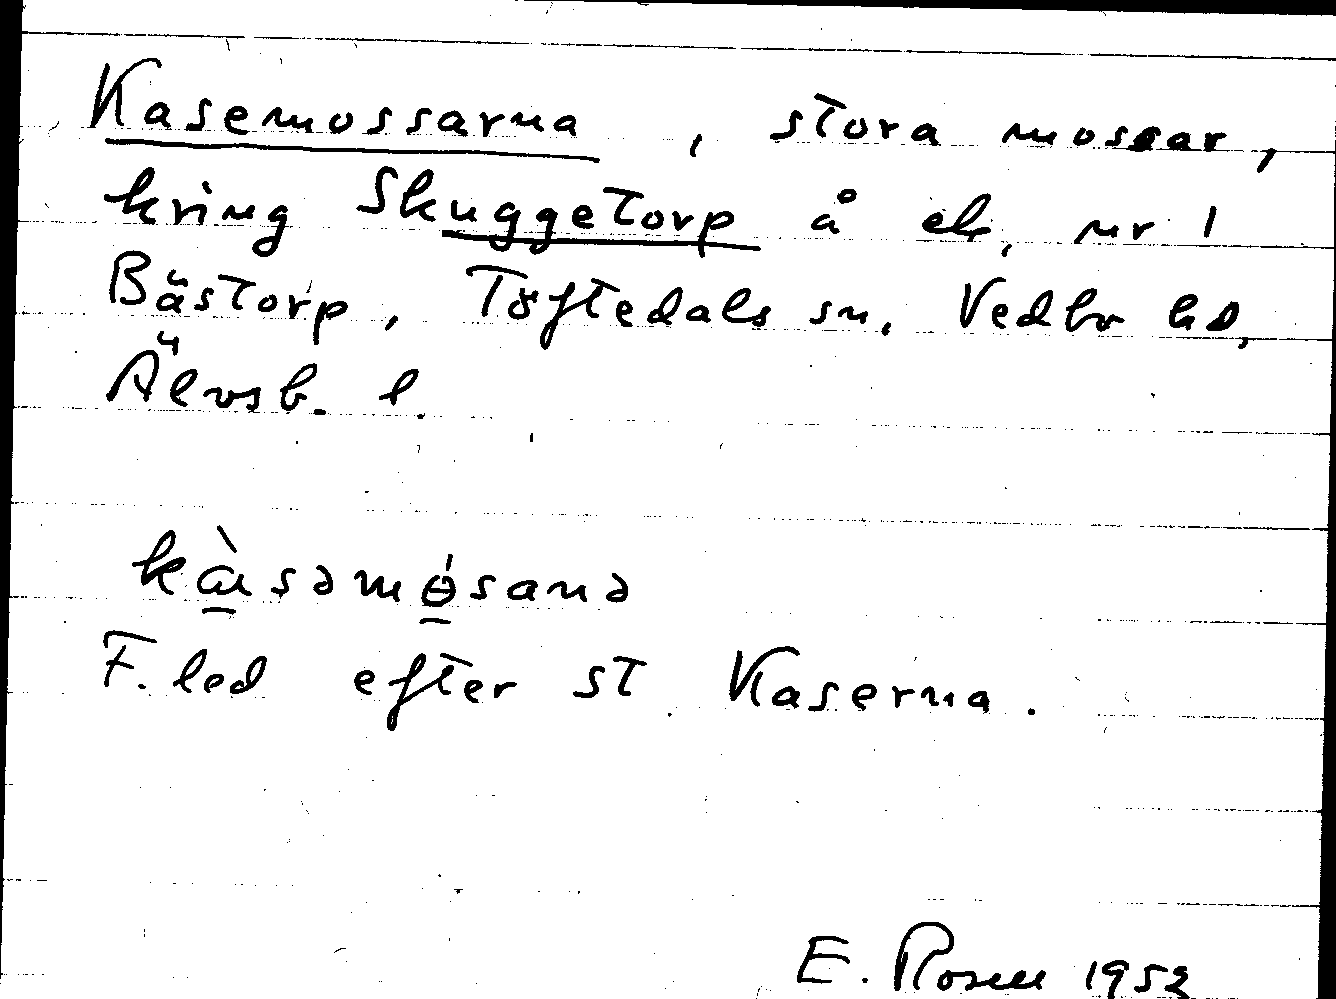 Kasemossarna, stora mossar,
kring Skuggetorp å ek. nr 1
Bästorp, Töftedals sn. Vedbo hd,
Älvsb. l.
kɑ̀səmɵ́sanə
F. led efter st Kaserna.
E. Rosell 1952